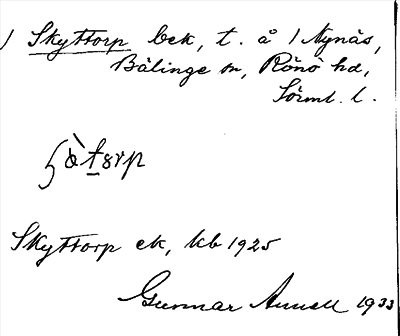 ) Skyttorp bek, t. å / Nynäs,
Bälinge sn, Rönö hd,
Sörml. l.
Skyttorp ek, kb 1925
Gunnar Annell 1933